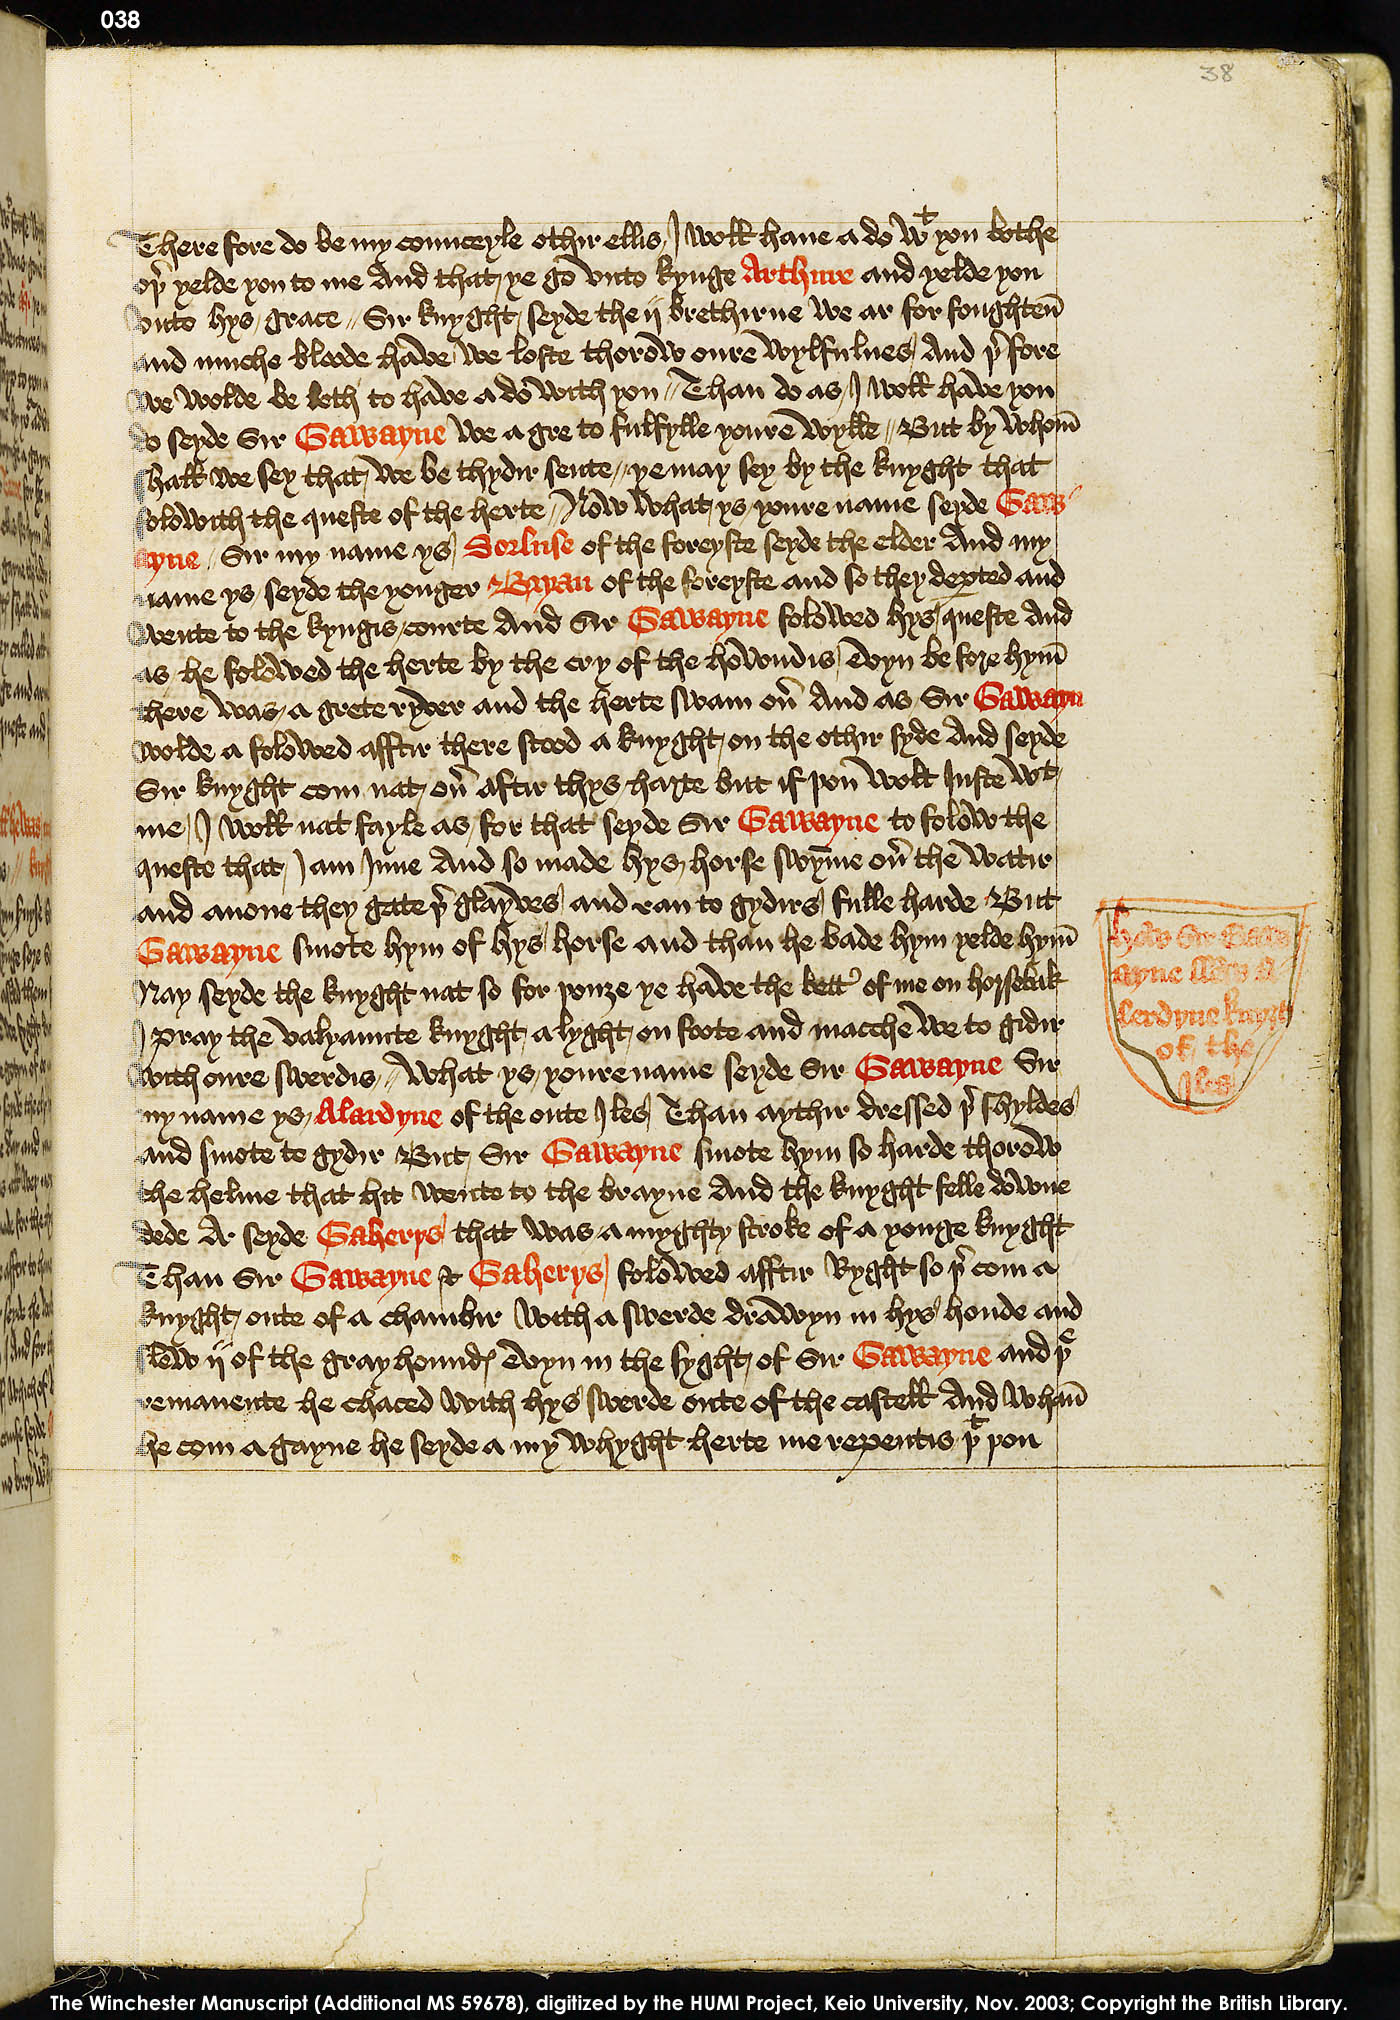 038
38
There fore do be my counceyle othir ellis I woll haue a do wt you bothe
oþr yelde you to me And that ye go vnto kynge Arthure and yelde you
vnto hys grace // Sir knyght seyde the ij brethirne we ar for foughten̄
and muche bloode haue we loste thorow oure wylfulnes And þr fore
we wolde be loth to haue a do with you // Than do as I woll haue you
do seyde Sir Gawayne we a gre to fulfylle youre wylle // But by whom̄
shall we sey that we be thydir sente // ye may sey by the knyght that
folowith the queste of the herte // Now what ys youre name seyde Gaw
ayne // Sir my name ys Sorluse of the foreyste seyde the elder And my
name ys seyde the yonger Bryan of the foreyste and so they dep̱ted and
wente to the kyngis courte And Sir Gawayne folowed hys queste And
as he folowed the herte by the cry of the howndis evyn be fore hym̄
there was a grete ryver and the herte swam ou̔ And as Sir Gawayn
wolde a folowed afftir there stood a knyght on the othir syde And seyde
Sir knyght com nat ou̔ aftir thys harte but if þou wolt Iuste wt
me I woll nat fayle as for that seyde Sir Gawayne to folow the
queste that I am Inne And so made hys horse swym̄e ou̔ the watir
and anone they gate þr glayves and ran to gydirs fulle harde But
Gawayne smote hym of hys horse and than he bade hym yelde hym̄
Nay seyde the knyght nat so for þouze ye haue the bettr of me on horsebak
I pray the valyaunte knyght a lyght on foote and macche we to gidir
with oure swerdis // What ys youre name seyde Sir Gawayne Sir
my name ys Alardyne of the oute Iles Than aythir dressed þr shyldes
and smote to gydir But Sir Gawayne smote hym so harde thorow
the helme that hit wente to the brayne And the knyght felle downe
dede Ar seyde Gaherys that was a myghty stroke of a yonge knyght
Than Sir Gawayne & Gaherys folowed afftir Ryght so þr com a
knyght oute of a chambir with a swerde drawyn in hys honde and
slow ij of the grayhoundꝭ evyn in the syght of Sir Gawayne and þe
remanente he chaced with hys swerde oute of the castell And whan̄
he com agayne he seyde a my whyght herte me repentis þt þou
how Sir Gaw
ayne slew A
lerdyne knyght
of the
Iles
The Winchester Manuscript (Additional MS 59678), digitized by the HUMI Project, Keio University, Nov. 2003; Copyright the British Library.